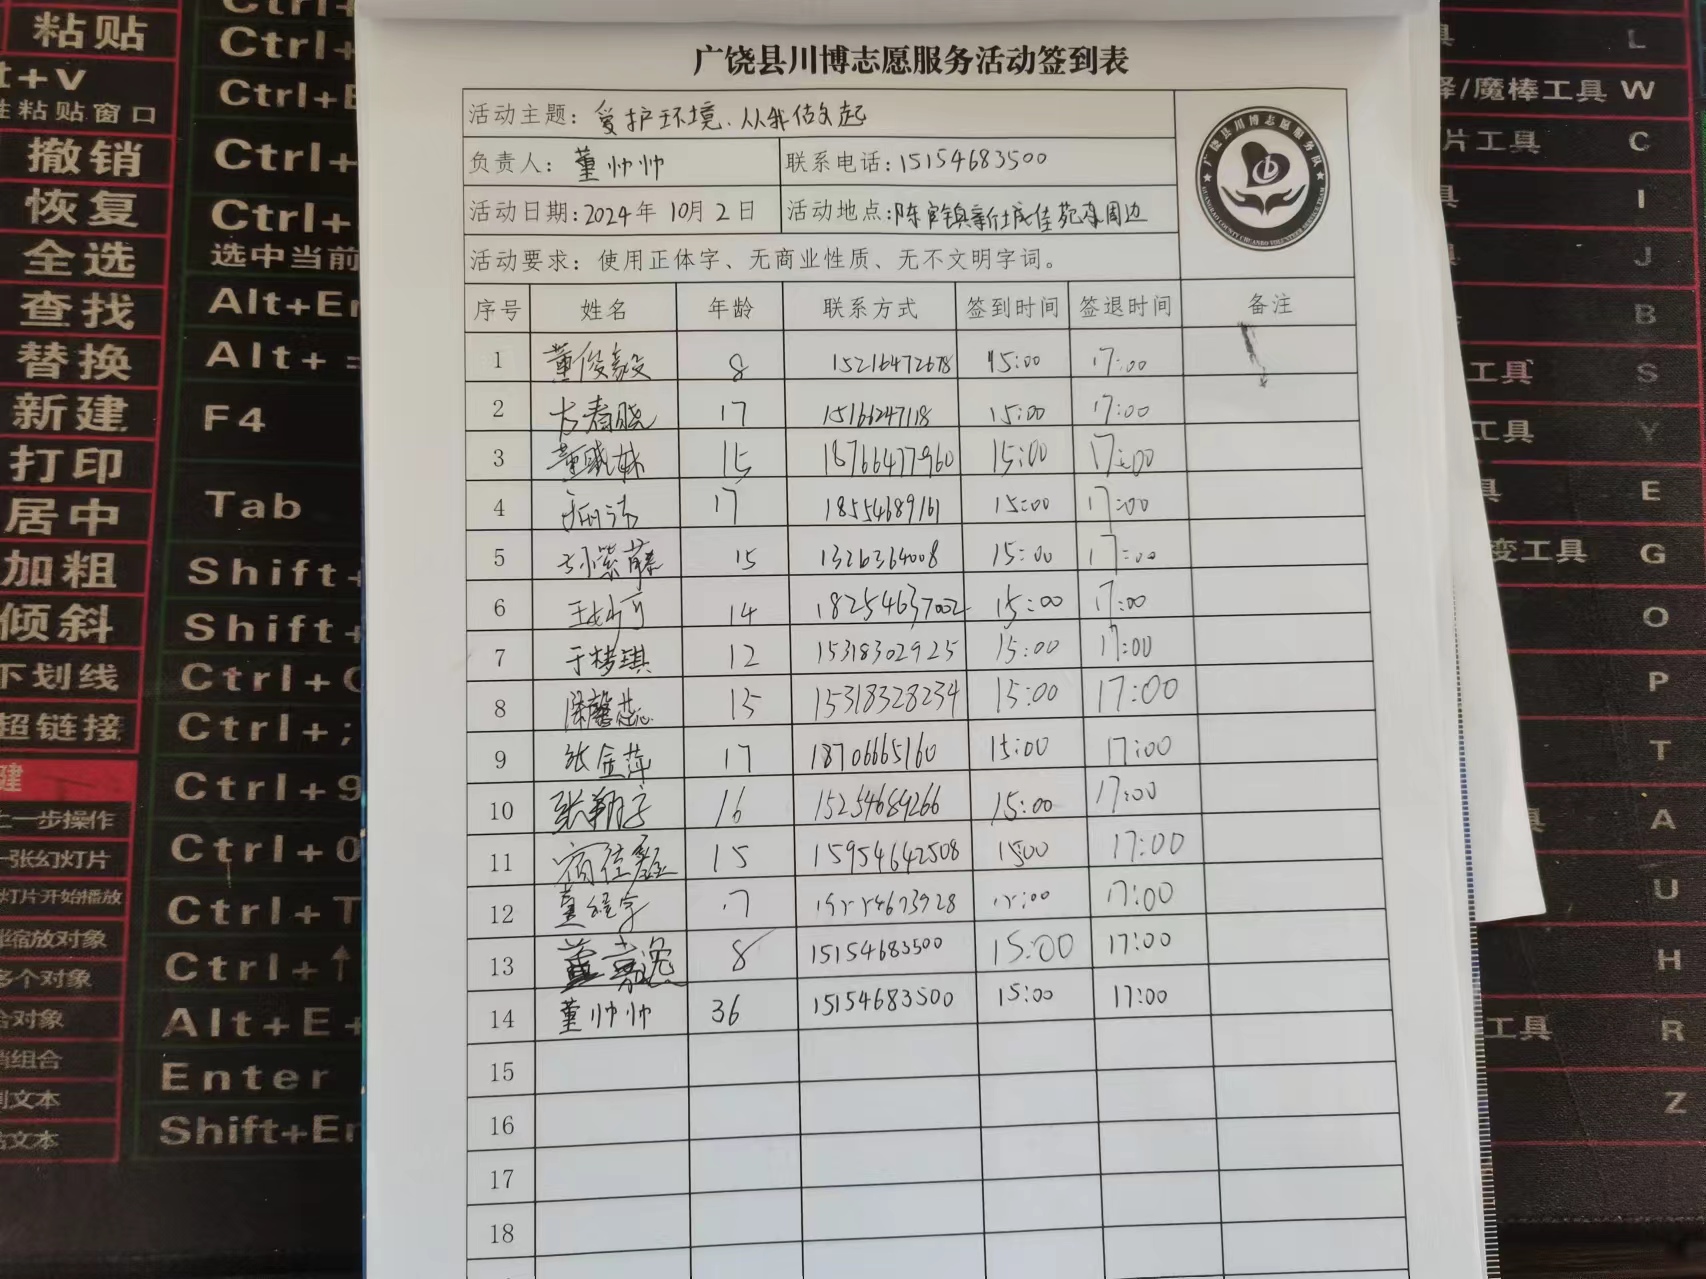 粘贴
Ctrl+
t+V
性粘贴窗口
Ctrl+E
撤销
Ctrl+
恢复
Ctrl+
全选
选中当前
查找
Alt+En
替换
Alt+ =
新建
F4
打印
居中
Tab
加粗
Shift+
倾斜
Shift+
下划线
Ctrl+C
超链接
Ctrl+;
建
Ctrl+9
上一步操作
一张幻灯片
Ctrl+0
灯片开始播放
Ctrl+T
缩放对象
Ctrl+↑
多个对象
合对象
Alt+E+
消组合
Enter
刂文本
Shift+En
占文本
广饶县川博志愿服务活动签到表
活动主题：爱护环境、从我做起
负责人：董帅帅 联系电话:15154683500
活动日期:2024年 10月2日 活动地点:陈官镇新城佳苑东周边
活动要求：使用正体字、无商业性质、无不文明字词。
广饶县川博志愿服务队
GUANGRAO COUNTY CHUANBO VOLUNTEER SERVICE TEAM
序号 姓名 年龄 联系方式 签到时间 签退时间 备注
1 董俊毅 8 15216472678 15:00 17:00
2 春晓 17 15166247118 15:00 17:00
3 董 15 18766477960 15:00 17:00
4 17 18554689161 15:00 17:00
5 孙紫藤 15 1326364008 15:00 17:00
6 王 可 14 18254637002 15:00 17:00
7 于梦琪 12 15318302925 15:00 17:00
8 陈馨蕊 15 15318328234 15:00 17:00
9 张金萍 17 18706665160 15:00 17:00
10 张 16 15254689266 15:00 17:00
11 佳鑫 15 15954642508 15:00 17:00
12 董 宇 7 15554673928 15:00 17:00
13 董 逸 8 15154683500 15:00 17:00
14 董帅帅 36 15154683500 15:00 17:00
15
16
17
18
具 L
择/魔棒工具 W
片工具 C
I
J
B
工具 S
工具 Y
具 E
变工具 G
O
P
T
具 A
U
H
工具 R
Z